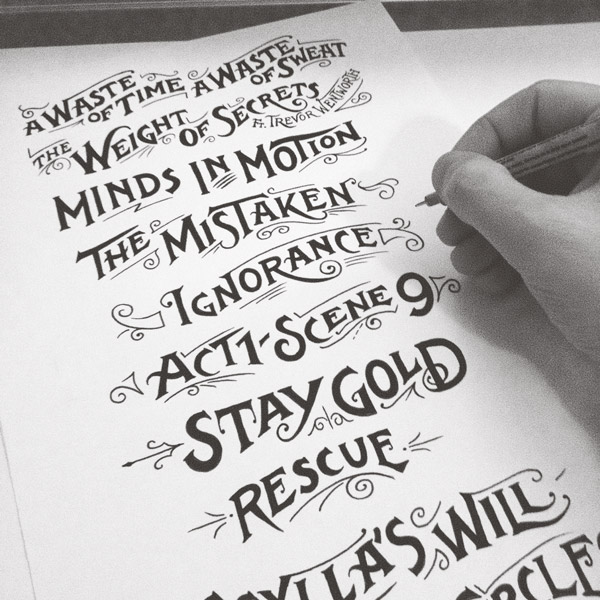 A WASTE OF TIME A WASTE OF SWEAT
THE WEIGHT OF SECRETS Ft. TREVOR WENTWORTH
MINDS IN MOTION
THE MISTAKEN
IGNORANCE
ACT 1-SCENE 9
STAY GOLD
RESCUE
WILL